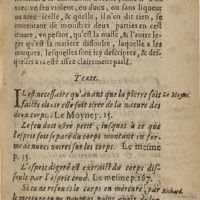 avec un feu violent, ou doux, ou sans iceluy ou
auec icelle, & quelle, il n'en dit rien, se
contentant de monstrer deux parties en cest
œuure, vn pesant, qu'est la masse, & l'autre le-
ger qu'est la matiere dissoulte, laquelle a les
marques, lesquelles sont icy descriptes, & des-
quelles a esté assez clairement parlé.
Texte.
Il est necessaire qu'auant que la pierre soit
faicte elixir elle soit tirée de la nature des
deux corps. Le Moyne p. 15.
Le Moyne.
Le feu doit estre petit, iusques à ce que
l'esprit soit separé du corps montant en for-
me de nuees noires sur les corps. Le mesme
p. 35.
L'esprit digeré est extraict du corps dis-
soult par l'esprit crud. Le mesme, 167.
Si tu ne resouls le corps en mercure, par
Richard.